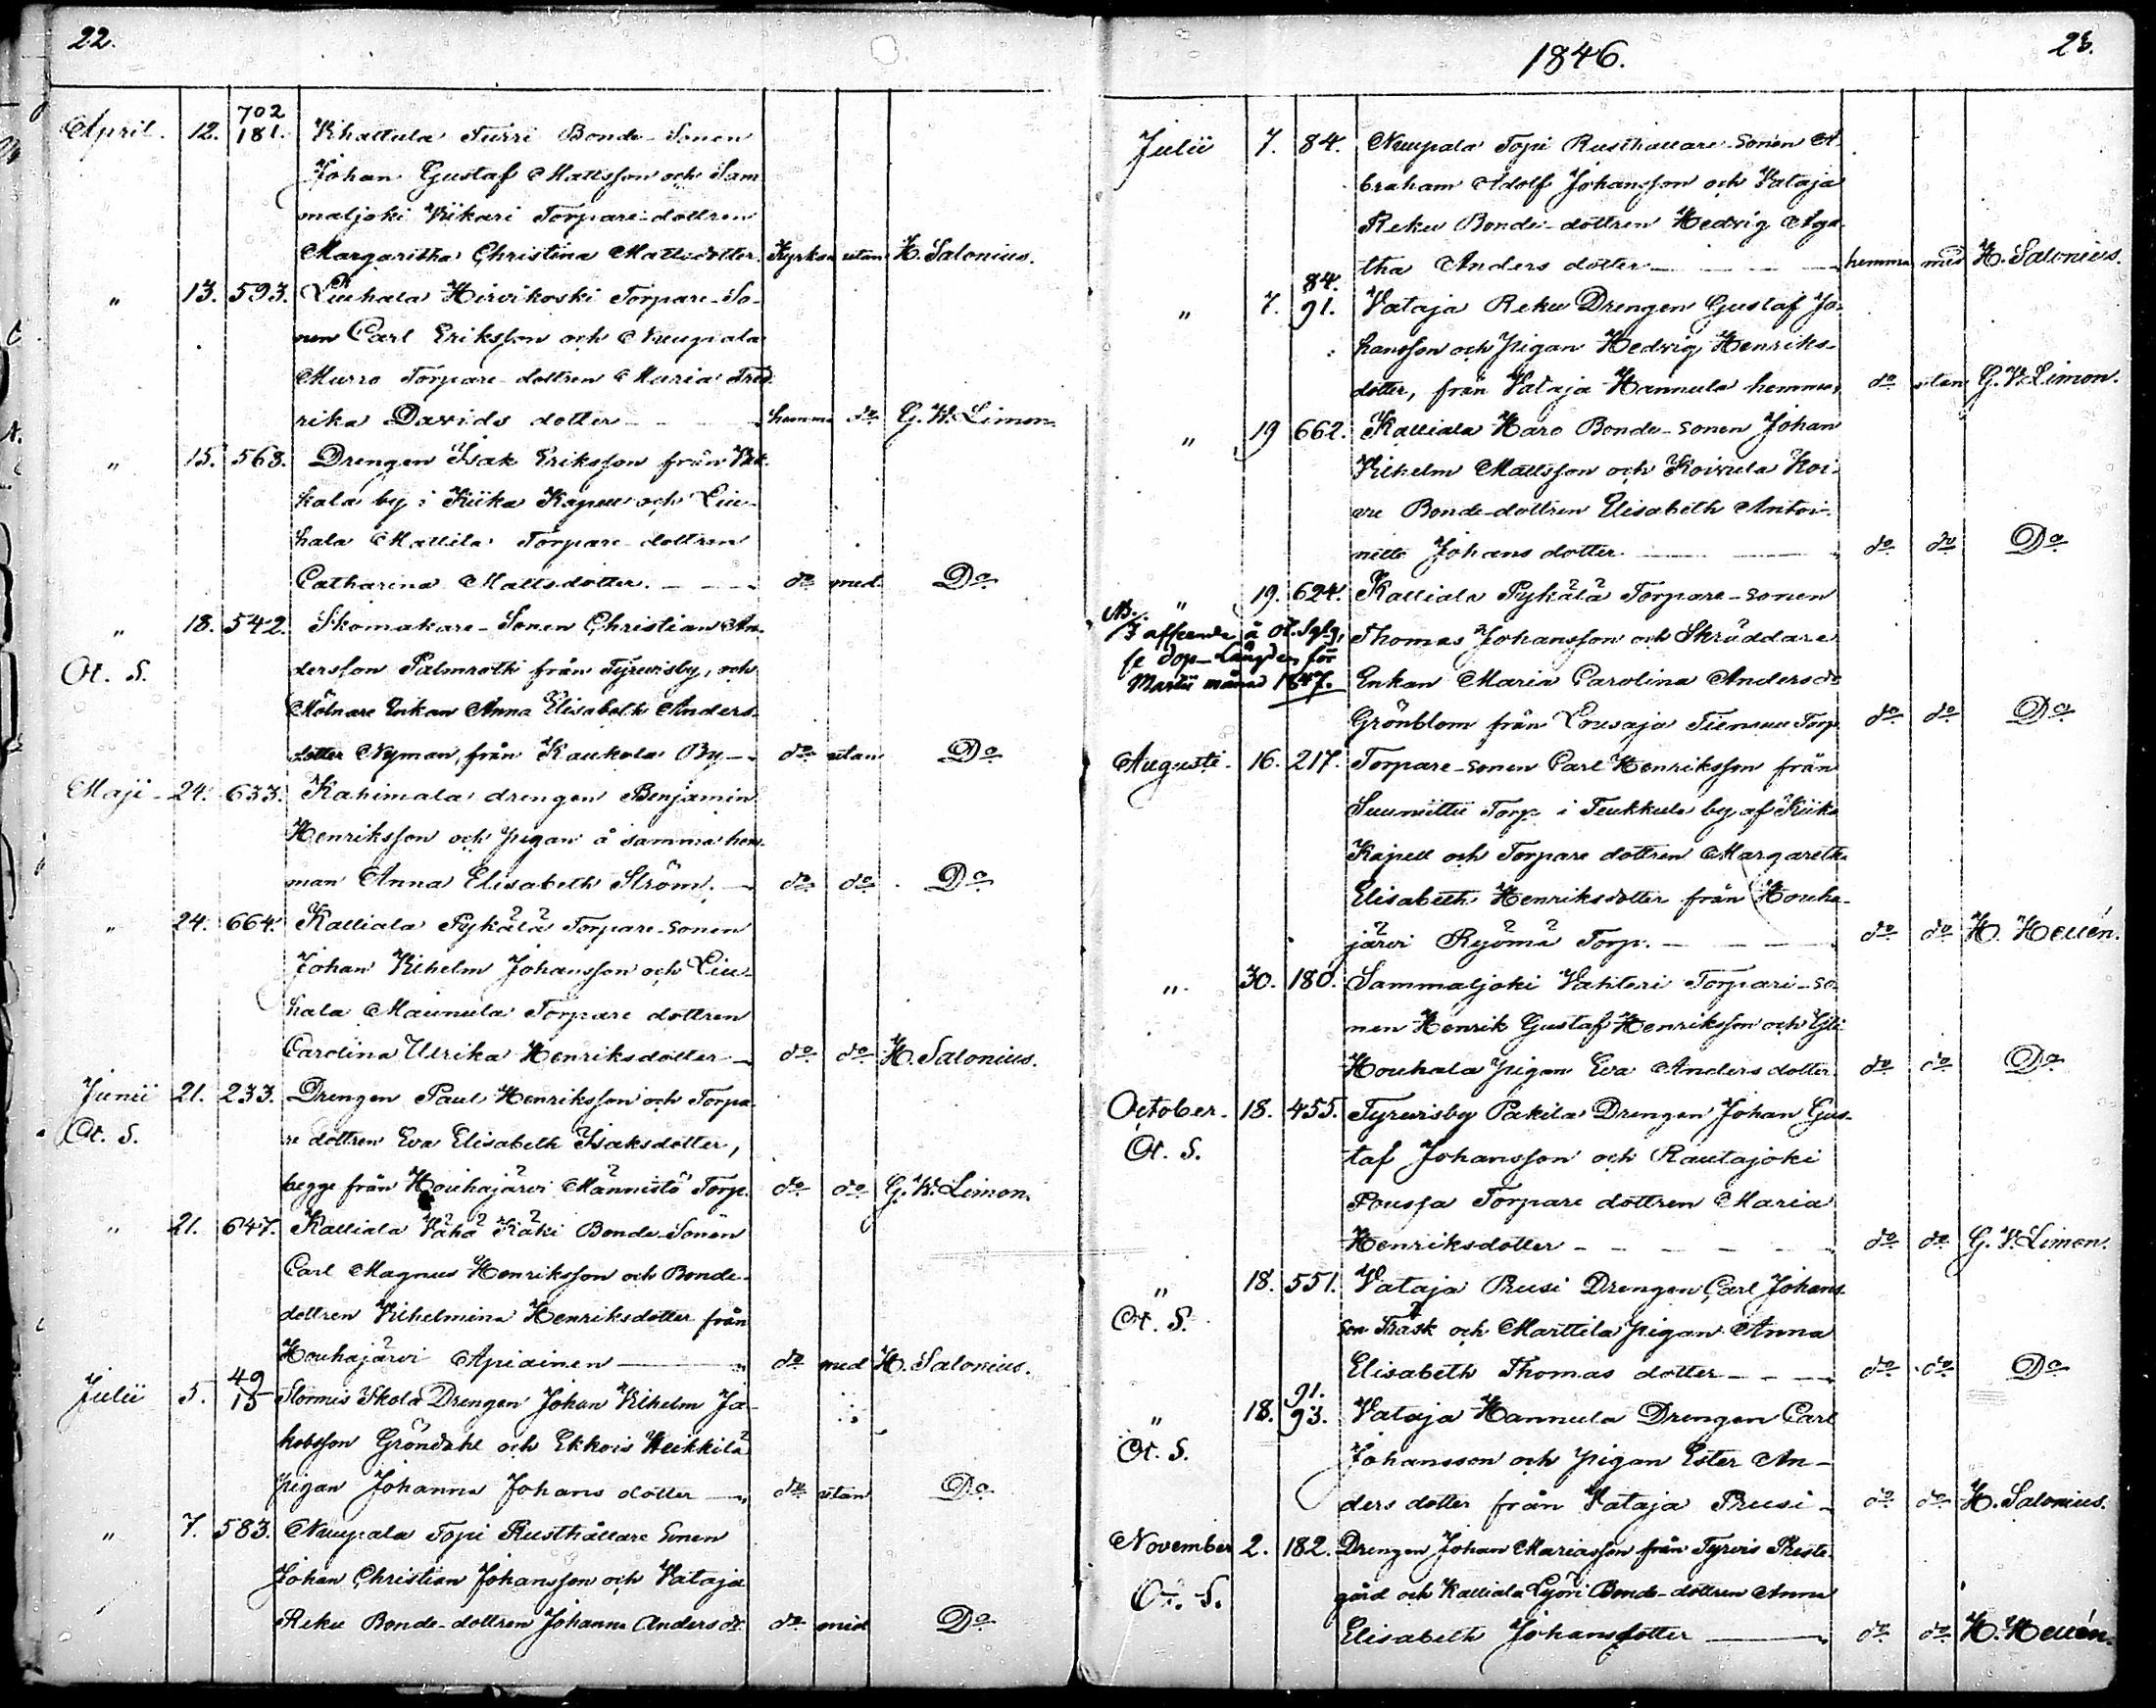 22.
April. 12. 702 181. Vihattula Turri Bonde-Sonen
Johan Gustaf Mattsson och Sam-
maljoki Vikari Torpare-dottren
Margaritha Christina Mattsdotter. Kyrkan utan H. Salonius.
" 13. 593. Liuhala Hirvikoski Torpare-So-
nen Carl Eriksson och Nuupala
Murro Torpare-dottren Maria Fred-
rika Davids dotter hemma do G. W. Limon.
" 15. 568. Drengen Isak Eriksson från
kala by i Kiika Kapell och Liu-
hala Mattila Torpare-dottren
Catharina Mattsdotter. do med Do
" 18. 542. Skomakare-Sonen Christian An-
Ot. S. dersson Palmroth från Tyrvisby, och
Mölnare Enkan Anna Elisabeth Anders-
dotter Nyman, från Kaukola By do utan Do
Maji 24. 633. Kahimala drengen Benjamin
Henriksson och pigan å samma hem-
man Anna Elisabeth Ström. do do Do
" 24. 664. Kalliala Pykälä Torpare-sonen
Johan Vilhelm Johansson och Liu-
hala Maunula Torpare dottren
Carolina Ulrika Henriksdotter do do H. Salonius.
Junii 21. 233. Drengen Paul Henriksson och Torpa-
Ot. S. re dottren Eva Elisabeth Isaksdotter,
begge från Houhajärvi Männistö Torp. do do G. W. Limon.
" 21. 647. Kalliala Vähä Käki Bonde-Sonen
Carl Magnus Henriksson och Bonde-
dottren Vilhelmina Henriksdotter från
Houhajärvi Apiainen do med H. Salonius.
Julii 5. 49 15 Stormis Skola Drengen Johan Vilhelm Ja-
kobsson Gröndahl och Ekkois Heikkilä
pigan Johanna Johans dotter do utan Do
" 7. 583. Nuupala Topi Rusthållare Sonen
Johan Christian Johansson och Vataja
Reku Bonde-dottren Johanna Anders dr do med Do
1846. 23.
Julii 7. 84. Nuupala Topi Rusthållare-Sonen A-
braham Adolf Johansson och Vataja
Reku Bonde-dottren Hedvig Aga-
tha Anders dotter hemma med H. Salonius.
" 7. 84. 91. Vataja Reku Drengen Gustaf Jo-
hansson och pigan Hedvig Henriks-
dotter, från Vataja Hannula hemman do utan G. W. Limon.
" 19 662. Kalliala Haro Bonde-Sonen Johan
Vilhelm Mattsson och Koivula Koi-
vu Bonde-dottren Elisabeth Antoi-
nette Johans dotter do do Do
" 19. 624. Kalliala Pykälä Torpare-Sonen
NB. I afseende å Ot. Splg, Thomas Johansson och Skräddare
se dop-Längden för
Martii månad 1847. Enkan Maria Carolina Anders dr
Grönblom från Lousaja Tiensuu Torp. do do Do
Augusti. 16. 217. Torpare-Sonen Carl Henriksson från
Suuniittu Torp i Teukkula by af Kiika
Kapell och Torpare dottren Margaretha
Elisabeth Henriksdotter från Houha-
järvi Ryömä Torp. do do H. Hellén.
" 30. 180. Sammaljoki Vahteri Torpari-so-
nen Henrik Gustaf Henriksson och Yli-
Houhala pigan Eva Anders dotter. do do Do
October. 18. 455. Tyrvisby Pakila Drengen Johan Gus-
Ot. S. taf Johansson och Rautajoki
Poussa Torpare dottren Maria
Henriksdotter do do G. W. Limon.
" 18. 551. Vataja Prusi Drengen Carl Johans-
Ot. S. son Träsk och Marttila pigan Anna
Elisabeth Thomas dotter do do Do
" 18. 91. 93. Vataja Hannula Drengen Carl
Ot. S. Johansson och pigan Ester An-
ders dotter från Vataja Prusi do do H. Salonius.
November 2. 182. Drengen Johan Mariasson från Tyrvis Preste-
Ot. S. gård och Kalliala Lyöri Bonde-dottren Anna
Elisabeth Johansdotter do do H. Hellén.